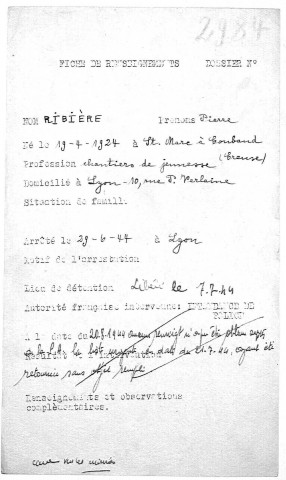 2984
FICHE DE RENSEIGNEMENTS DOSSIER N°
NOM RIBIÈRE Prenoms Pierre
Né le 19-4-1924 à St. Marc à Loubaud
(Creuse)
Profession chantiers de jeunesse
Domicilié à Lyon - 10, rue P. Verlaine
Situation de famille
Arrêté le 29-6-44 à Lyon
Motif de l'arrestation
Lieu de détention Libéré le 7.7.44
Autorité française intervenue: INTENDANCE DE
POLICE
A la date du 20.8.1944 aucun renseigt n'ayant été obtenu
la liste en date du 21.7.44, ayant été
retournée sans
Renseignements et observations
complémentaires.